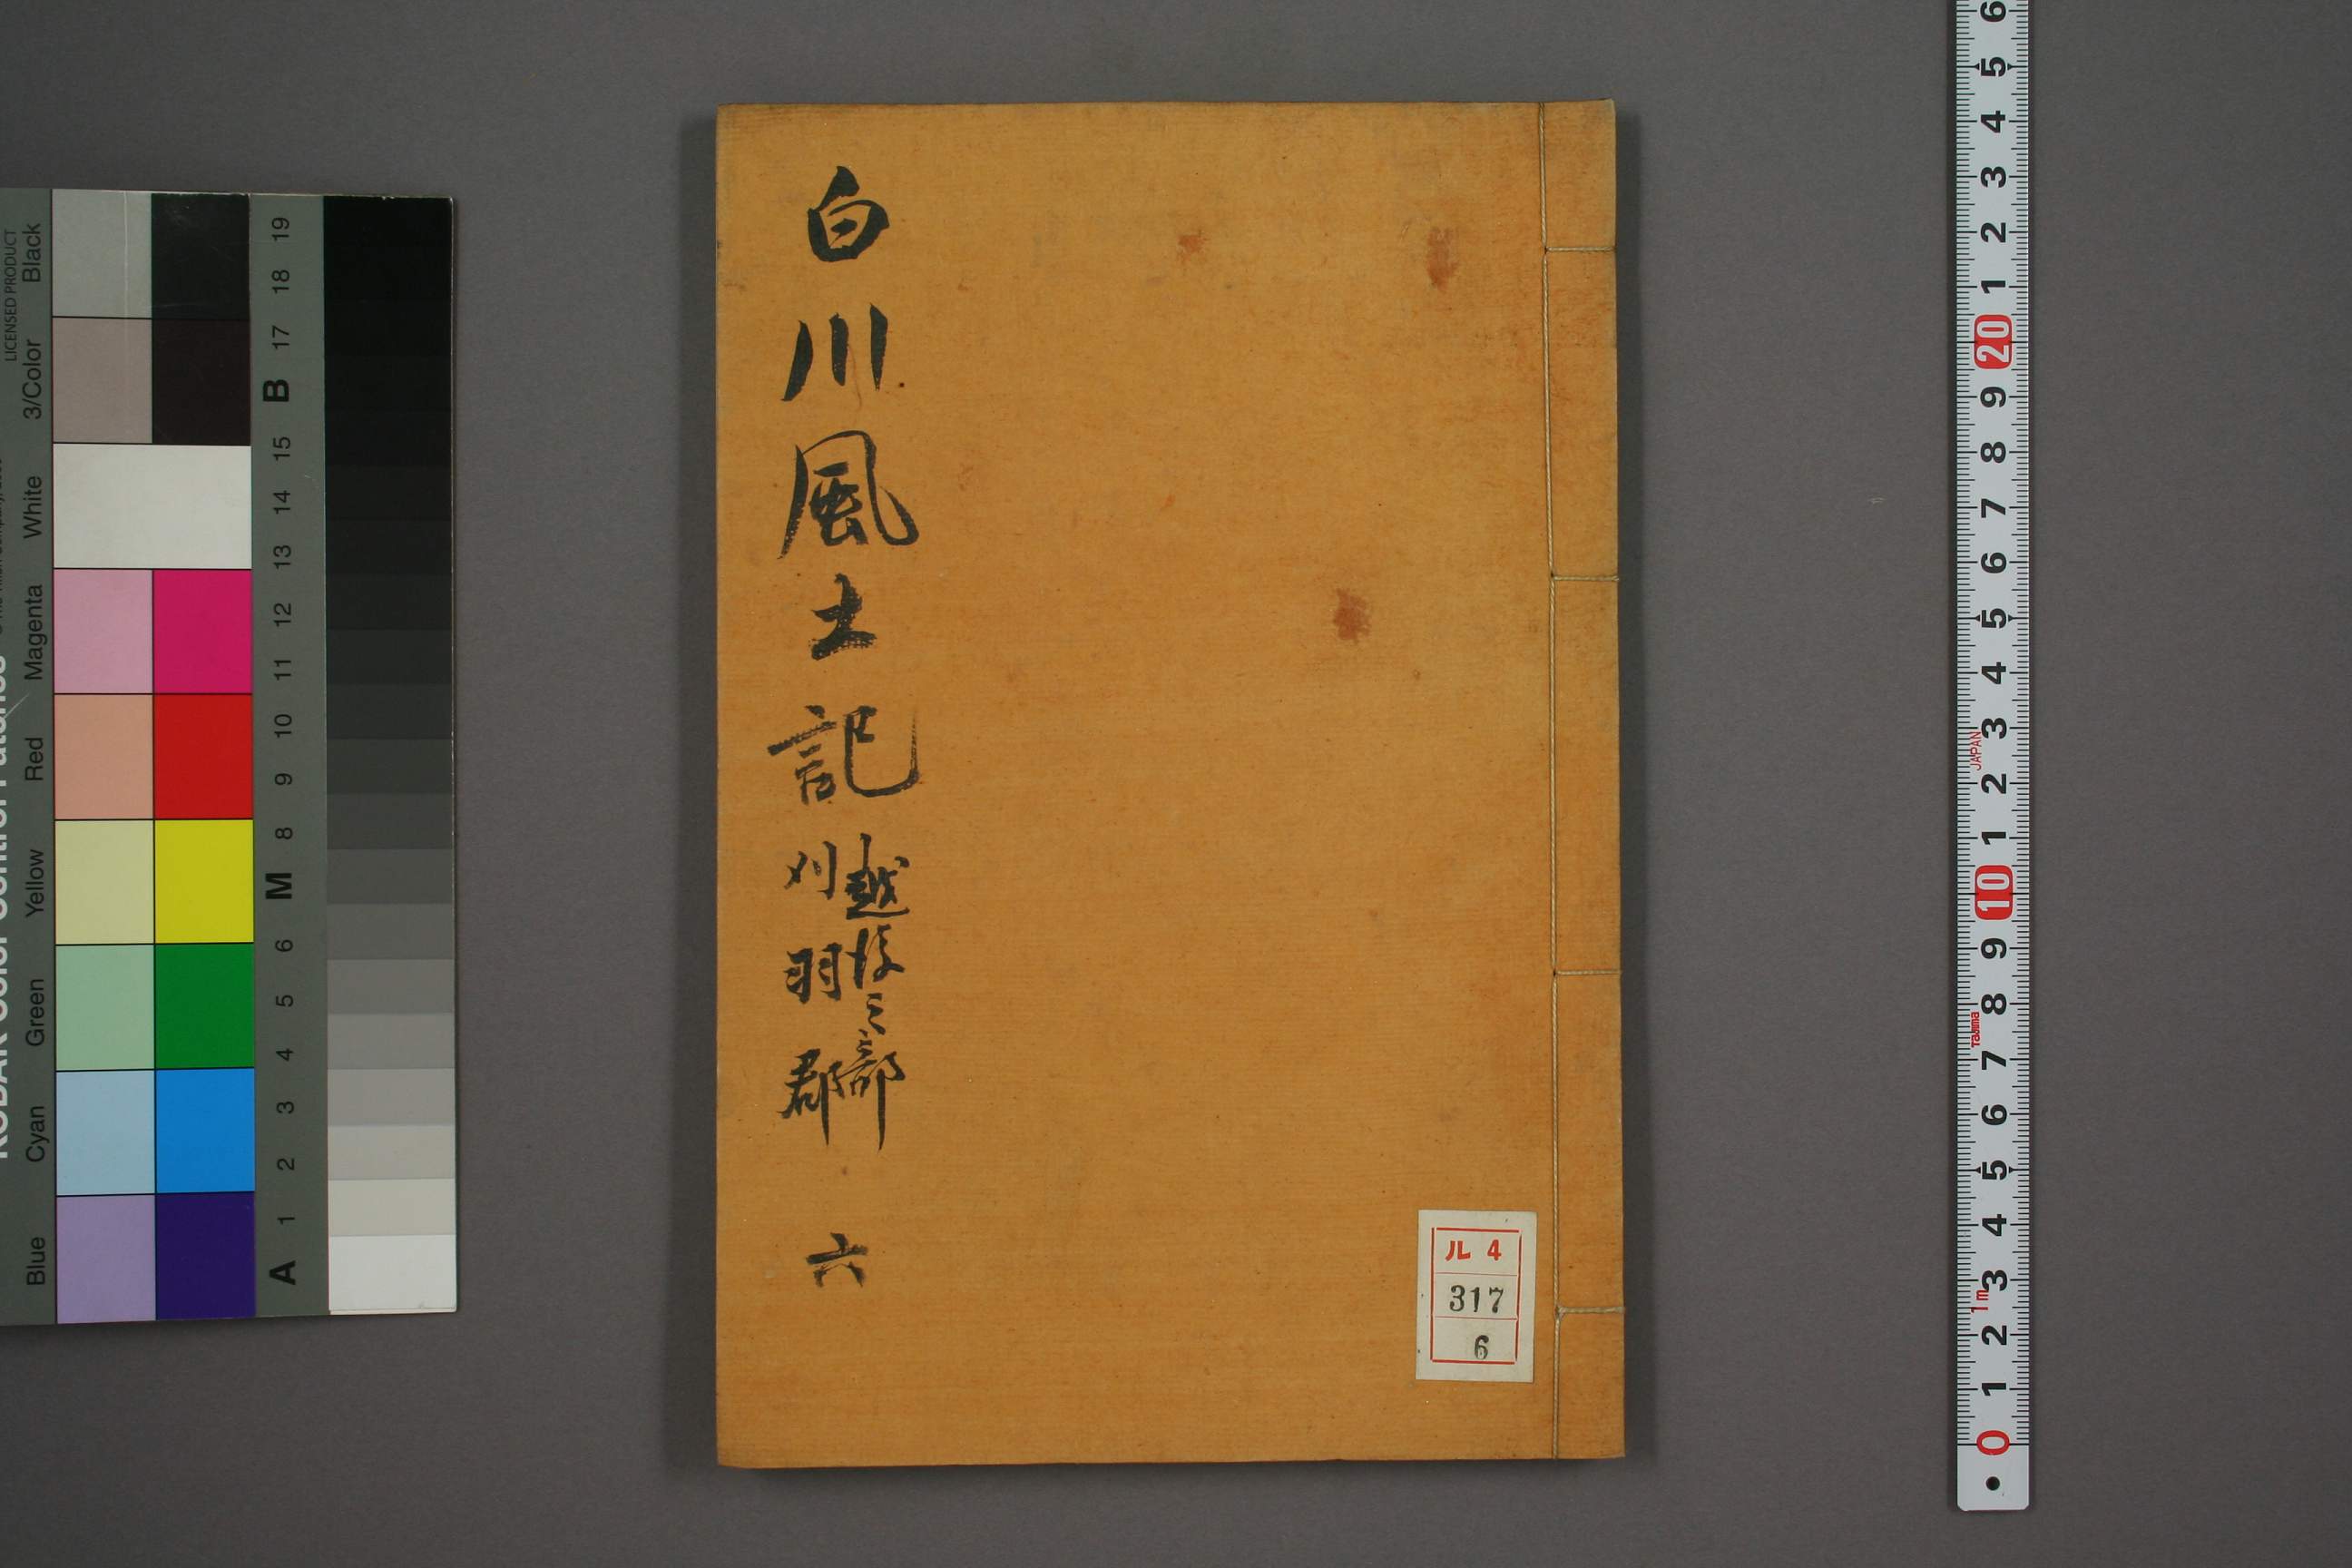 白川風土記
越後之部
刈羽郡
六
ル 4
317
6
LICENSED PRODUCT
Black
3/Color
White
Magenta
Red
Yellow
Green
Cyan
Blue
19
18
17
B
15
14
13
12
11
10
9
8
M
6
5
4
3
2
1
A
6
5
4
3
2
1
20
9
8
7
6
5
4
3
JAPAN
2
1
10
9
8
Tajima
7
6
5
4
3
1m
2
1
0